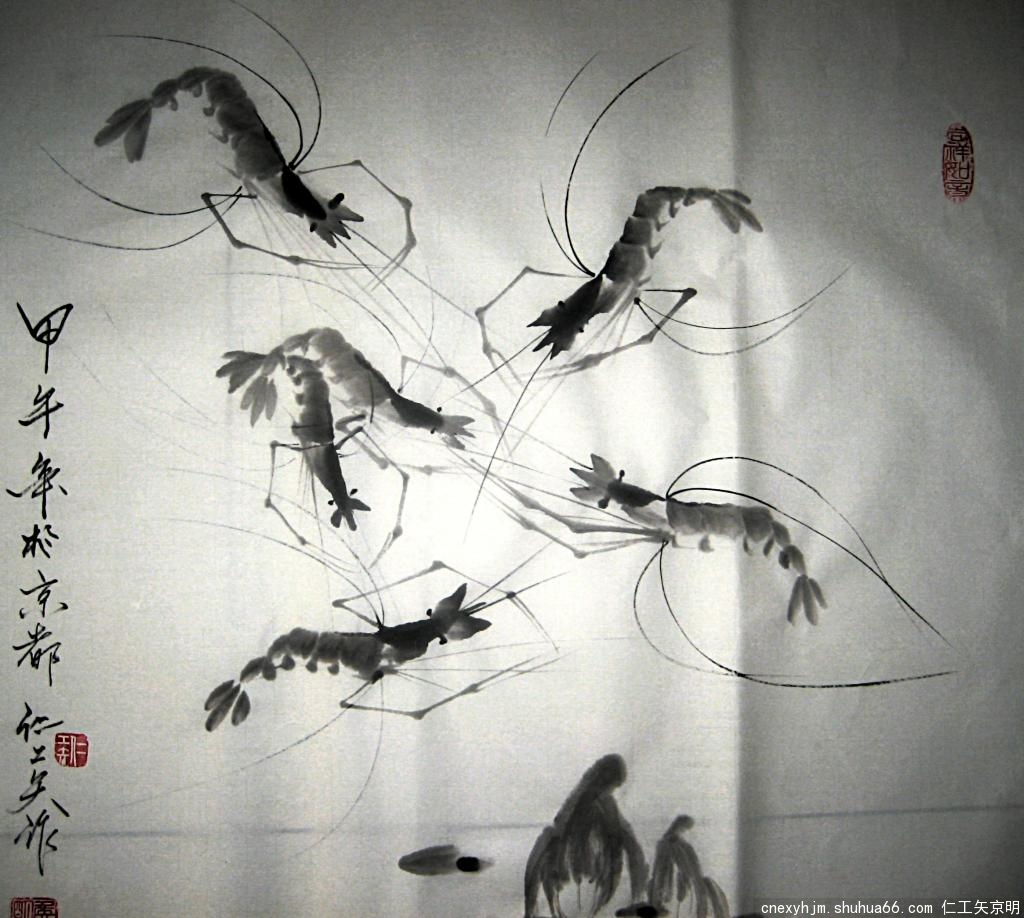 甲午年於京都
仁工矢作
吉祥如意
cnexyhjm.shuhua66.com 仁工矢京明